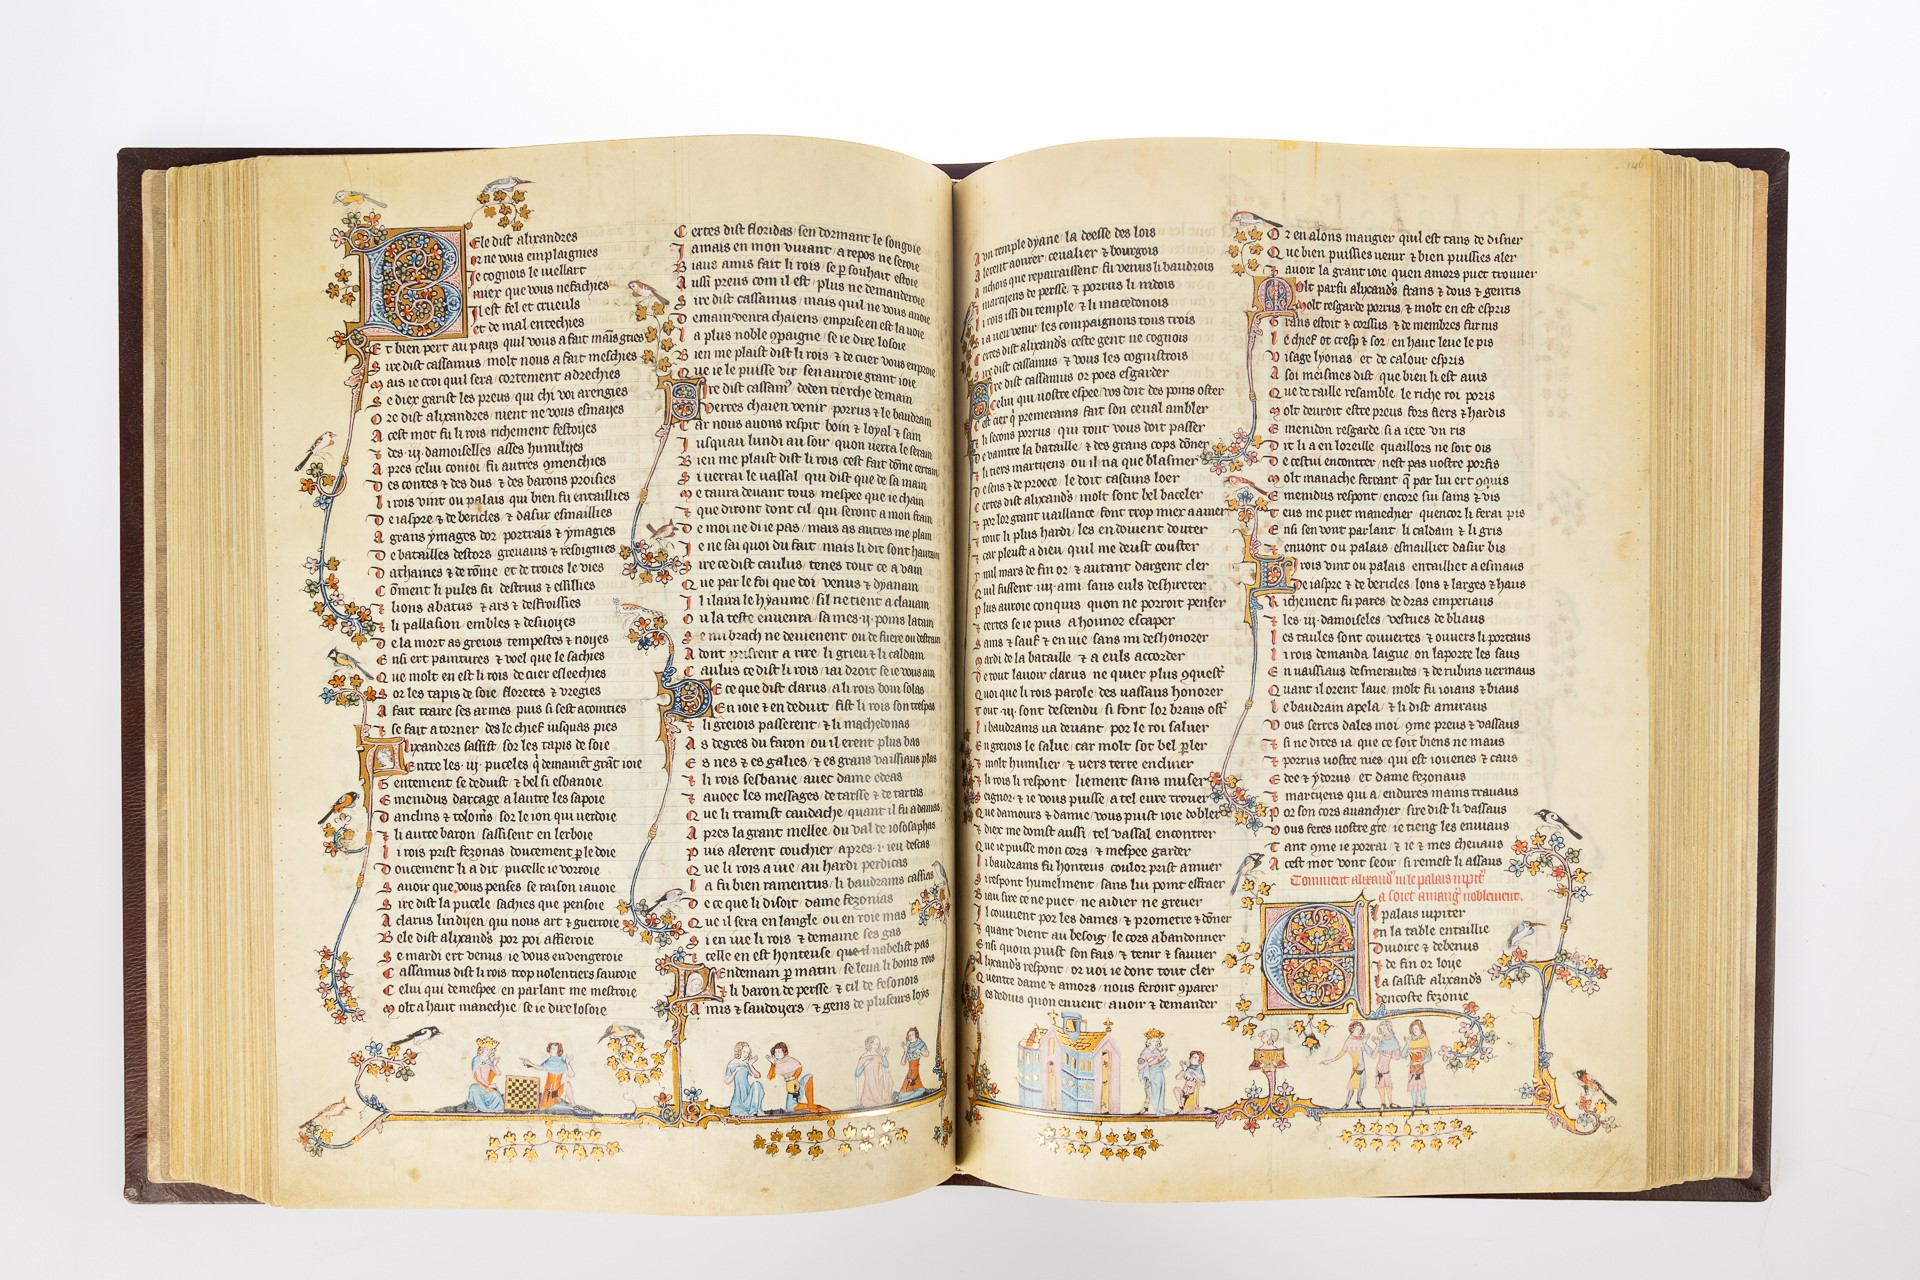 Ele dist alixandres
or ne vous emplaignies
Je cognois le viellart
miex que vous nefachies
Il est fel et crueuls
et de mal entechies
E t bien pert au pays quil vous a fait
S ire dist cassamus molt nous a fait meschies
M ais ie croi quil sera cortement adrechies
S e diex garist les preus qui chi voi arengies
O re dist alixandres nient ne vous esmaijes
A cest mot fu li rois richement festoijes
⁊ des .iij. damoiselles asses humilijes
A pres celui conioi fu autres
D es contes ⁊ des dus ⁊ des barons proisies
L i rois vint ou palais qui bien fu entaillies
D e iaspre ⁊ de bericles ⁊ dasur esmaillies
A grans ymages dor portrais ⁊ ymagies
D e batailles destors greuains ⁊ resoignies
D athaines ⁊ de rōme et de troies le vies
C ōment li pules fu destruis ⁊ essillies
⁊ lions abatus ⁊ ars ⁊ defroissies
li pallasion embles ⁊ desuoijes
D e la mort as grejois tempestes ⁊ noijes
E nsi ert paintures ⁊ voel que le sachies
Q ue molt en est li rois de cuer esleechies
S or les tapis de soie floretes ⁊ vregies
A fait traire ses armes puis si sest acointies
⁊ se fait a torner des le chief iusquas pies
Alixandres sassist sor les tapis de soie
Entre les .iij. puceles q̄ demainēt grāt ioie
G entement se deduist ⁊ bel si esbanoie
E menidus darcage a lautre les sapoie
D anclins ⁊ toloms sor le ion qui verdoie
⁊ li autre baron sassisent en lerboie
L i rois prist fezonas doucement p le doie
D oucement li a dit pucelle ie vorroie
S auoir que vous penses se raison iauoie
S ire dist la pucele saches que pensoie
A clarus lindijen qui nous art ⁊ guerroie
B ele dist alixands por poi asfieroie
S e mardi ert venus ie vous en vengeroie
C assamus dist li rois trop volentiers sauroie
C elui qui demespee en parlant me mestroie
M olt a haut manechie se ie dire losoie
C ertes dist floridas sen dormant le songoie
J amais en mon viuant a repos ne seroie
B iaus amis fait li rois se p souhait estoie
A ussi preus com il est plus ne demanderoie
S ire dist cassamus mais quil ne vous anoie
D emain venra chaiens emprise en est la voie
L a plus noble ie dire losoie
B ien me plaist dist li rois ⁊ de cuer vous enproie
Q ue ie le puisse vir sen auroie grant ioie
Sire dist cassam' deden tierche demain
Verres chaien venir porrus ⁊ le baudrain
C ar nous auons respit boin ⁊ loyal ⁊ sain
J usquau lundi au soir quon verra le serain
B ien me plaist dist li rois cest fait dōme certain
S i verrai le vassal qui dist que de sa main
M e taura deuant tous mespee que ie chain
⁊ que diront dont cil qui seront a mon frain
D e moi ne di ie pas mais as autres me plain
J e ne sai quoi du fait mais li dit sont hautain
S ire ce dist caulus tenes tout ce a vain
Q ue par le foi que doi venus ⁊ dyanain
J l laira le hyaume sil ne tient a clauain
O u la teste enuenra sa mes .ij. poins latain
S e mi brach ne deuienent ou de fuere ou destrain
A dont prisent a rire li grieu ⁊ li caldain
C aulus ce dist li rois iai droit se ie vous ain
De ce que dist clarus a li rois boin solas
En ioie ⁊ en deduit fist li rois son trespas
⁊ li greiois passerent ⁊ li machedonas
A s degres du faron ou il erent plus bas
E s nes ⁊ es galies ⁊ es grans vaissiaus plas
⁊ li rois sesbanie auec dame edeas
⁊ avoec les messages de tarsse ⁊ de tartas
Q ue li tramist candache quant il fu a damas
A pres la grant mellee du val de iosoaphas
P uis alerent couchier apres .i. ieu descas
Q ue li rois a iue au hardi perdicas
L a fu bien ramentus li baudrains cassias
D e ce que li disoit dame fezonias
Q ue il sera en langle ou en roie mas
S i en iue li rois ⁊ demaine ses gas
⁊ celle en est honteuse que il nabelist pas
Lendemain p matin se leua li boins rois
⁊ li baron de persse ⁊ cil de fesonois
A mis ⁊ saudoyers ⁊ gens de plusieurs loys
A un temple dyane la deesse des lois
A lerent aourer ceualier ⁊ bourgois
A nchois que reparaissent fu venus li baudrois
⁊ martijens de persse ⁊ porrus li indois
L i rois issi du temple ⁊ li macedonois
S i a veu venir les compaignons tous trois
C ertes dist alixands ceste gent ne cognois
S ire dist cassamus ⁊ vous les cognistrois
Sire dist cassamus or poes esgarder
Celui qui vostre espee vos doit des poins oster
C est cier q̄ premerains fait son ceual ambler
li secons porrus qui tout vous doit passer
D e vaintre la bataille ⁊ des grans cops dōner
li tiers martijens ou il na que blasmer
D e sens ⁊ de proece le doit cascuns loer
C ertes dist alixands molt sont bel baceler
⁊ por lor grant vaillance font trop miex a amer
⁊ tout li plus hardi les en doiuent douter
⁊ car pleust a dieu quil me deust couster
x mil mars de fin or ⁊ autant dargent cler
Q uil fussent .iij. ami sans euls deshireter
P lus auroie conquis quon ne porroit penser
⁊ certes se ie puis a hounor escaper
S ains ⁊ sauf ⁊ en vie sans mi deshonorer
M ardi de la bataille ⁊ a euls accorder
D e tout lauoir clarus ne quier plus
Q uoi que li rois parole des vassaus honorer
T out .iij. sont descendu si font lor brans
L i baudrains va deuant por le roi saluer
E n greiois le salue car molt sot bel pler
⁊ molt humilier ⁊ vers terre encliner
⁊ li rois li respont liement sans muser
S ignor ⁊ ie vous puisse a tel eure trouer
Q ue damours ⁊ damie vous puist ioie dobler
⁊ diex me doinst aussi tel vassal encontrer
Q ue ie puisse mon cors ⁊ mespee garder
L i baudrains fu honteus coulor prist a muer
S i respont humelment sans lui point effraer
B iau sire ce ne puet ne aidier ne greuer
J l couuient por les dames ⁊ pzometre ⁊ dōner
⁊ quant vient au besoig le cors abandonner
E nsi quom puist son fais ⁊ tenir ⁊ sauuer
Alixands respont or voi ie dont tout cler
Q uentre dame ⁊ amors nous feront
L es dedius quon en vient auoir ⁊ demander
O r en alons mangier quil est tans de disner
Q ue bien puissies venir ⁊ bien puissies aler
⁊ auoir la grant ioie quen amors puet trouuer
Molt parfu alixands frans ⁊ dous ⁊ gentis
Molt resgarde porrus ⁊ molt en est espris
G rans estoit ⁊ corssus ⁊ de membres furnis
L e chief ot cresp ⁊ sor en haut leue le pis
V isage lyonas et de calour espris
A soi meismes dist que bien li est auis
Q ue de taille resamble le riche roi poris
M olt deuroit estre preus fors fiers ⁊ hardis
E menidon resgarde si a iete un ris
D it li a en loreille quaillors ne soit ois
D e cestui encontrer nest pas vostre porfis
M olt manache ferrant par lui ert
E menidus respont encore sui sains ⁊ vis
T eus me puet manechier quencor li ferai pis
E nsi sen vont parlant li caldain ⁊ li gris
⁊ enuont ou palais esmailliet dasur bis
Li rois vint ou palais entailliet a esmaus
De iaspre ⁊ de bericles lons ⁊ larges ⁊ haus
R ichement fu pares de dras emperiaus
⁊ les .iij. damoiseles vestues de bliaus
L es taules sont couuertes ⁊ ouuers li portaus
L i rois demanda laigue on laporte les saus
E n vaissiaus desmeraudes ⁊ de rubins vermaus
Q uant il orent laue molt fu ioians ⁊ biaus
L e baudrain apela ⁊ li dist amiraus
V ous serres dales moi preus ⁊ vassaus
⁊ si ne dites ia que ce soit biens ne maus
⁊ porrus vostre nies qui est iouenes ⁊ caus
E dee ⁊ ydorus et dame fezonaus
⁊ martijens qui a endures mains trauaus
P or son cors auanchier sire dist li vassaus
V ous feres vostre gre ie tieng les enuiaus
T ant que ie porrai ⁊ ie ⁊ mes cheuaus
A cest mot vont seoir si remest li assaus
Comment alixand' ou palais
a soiet a mang' noblement.
El palais iupiter
en la table entaillie
Diuoire ⁊ debenus
⁊ de fin or loije
La sassist alixands
dencoste fezonie